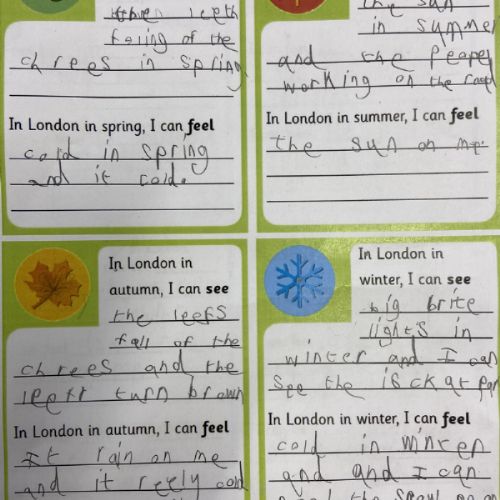 leeth
faling of the
chrees in spring
In London in spring, I can feel
cold in spring
and it cold.
the sun
in summer
and the peaper
working on the road
In London in summer, I can feel
the sun on me.
In London in
autumn, I can see
the leefs
fall of the
chrees and the
leeft turn brown
In London in autumn, I can feel
It rain on me
and it reely cold
In London in
winter, I can see
big brite
lights in
winter and I can
see the is ckat
In London in winter, I can feel
cold in
and and I can
the snow